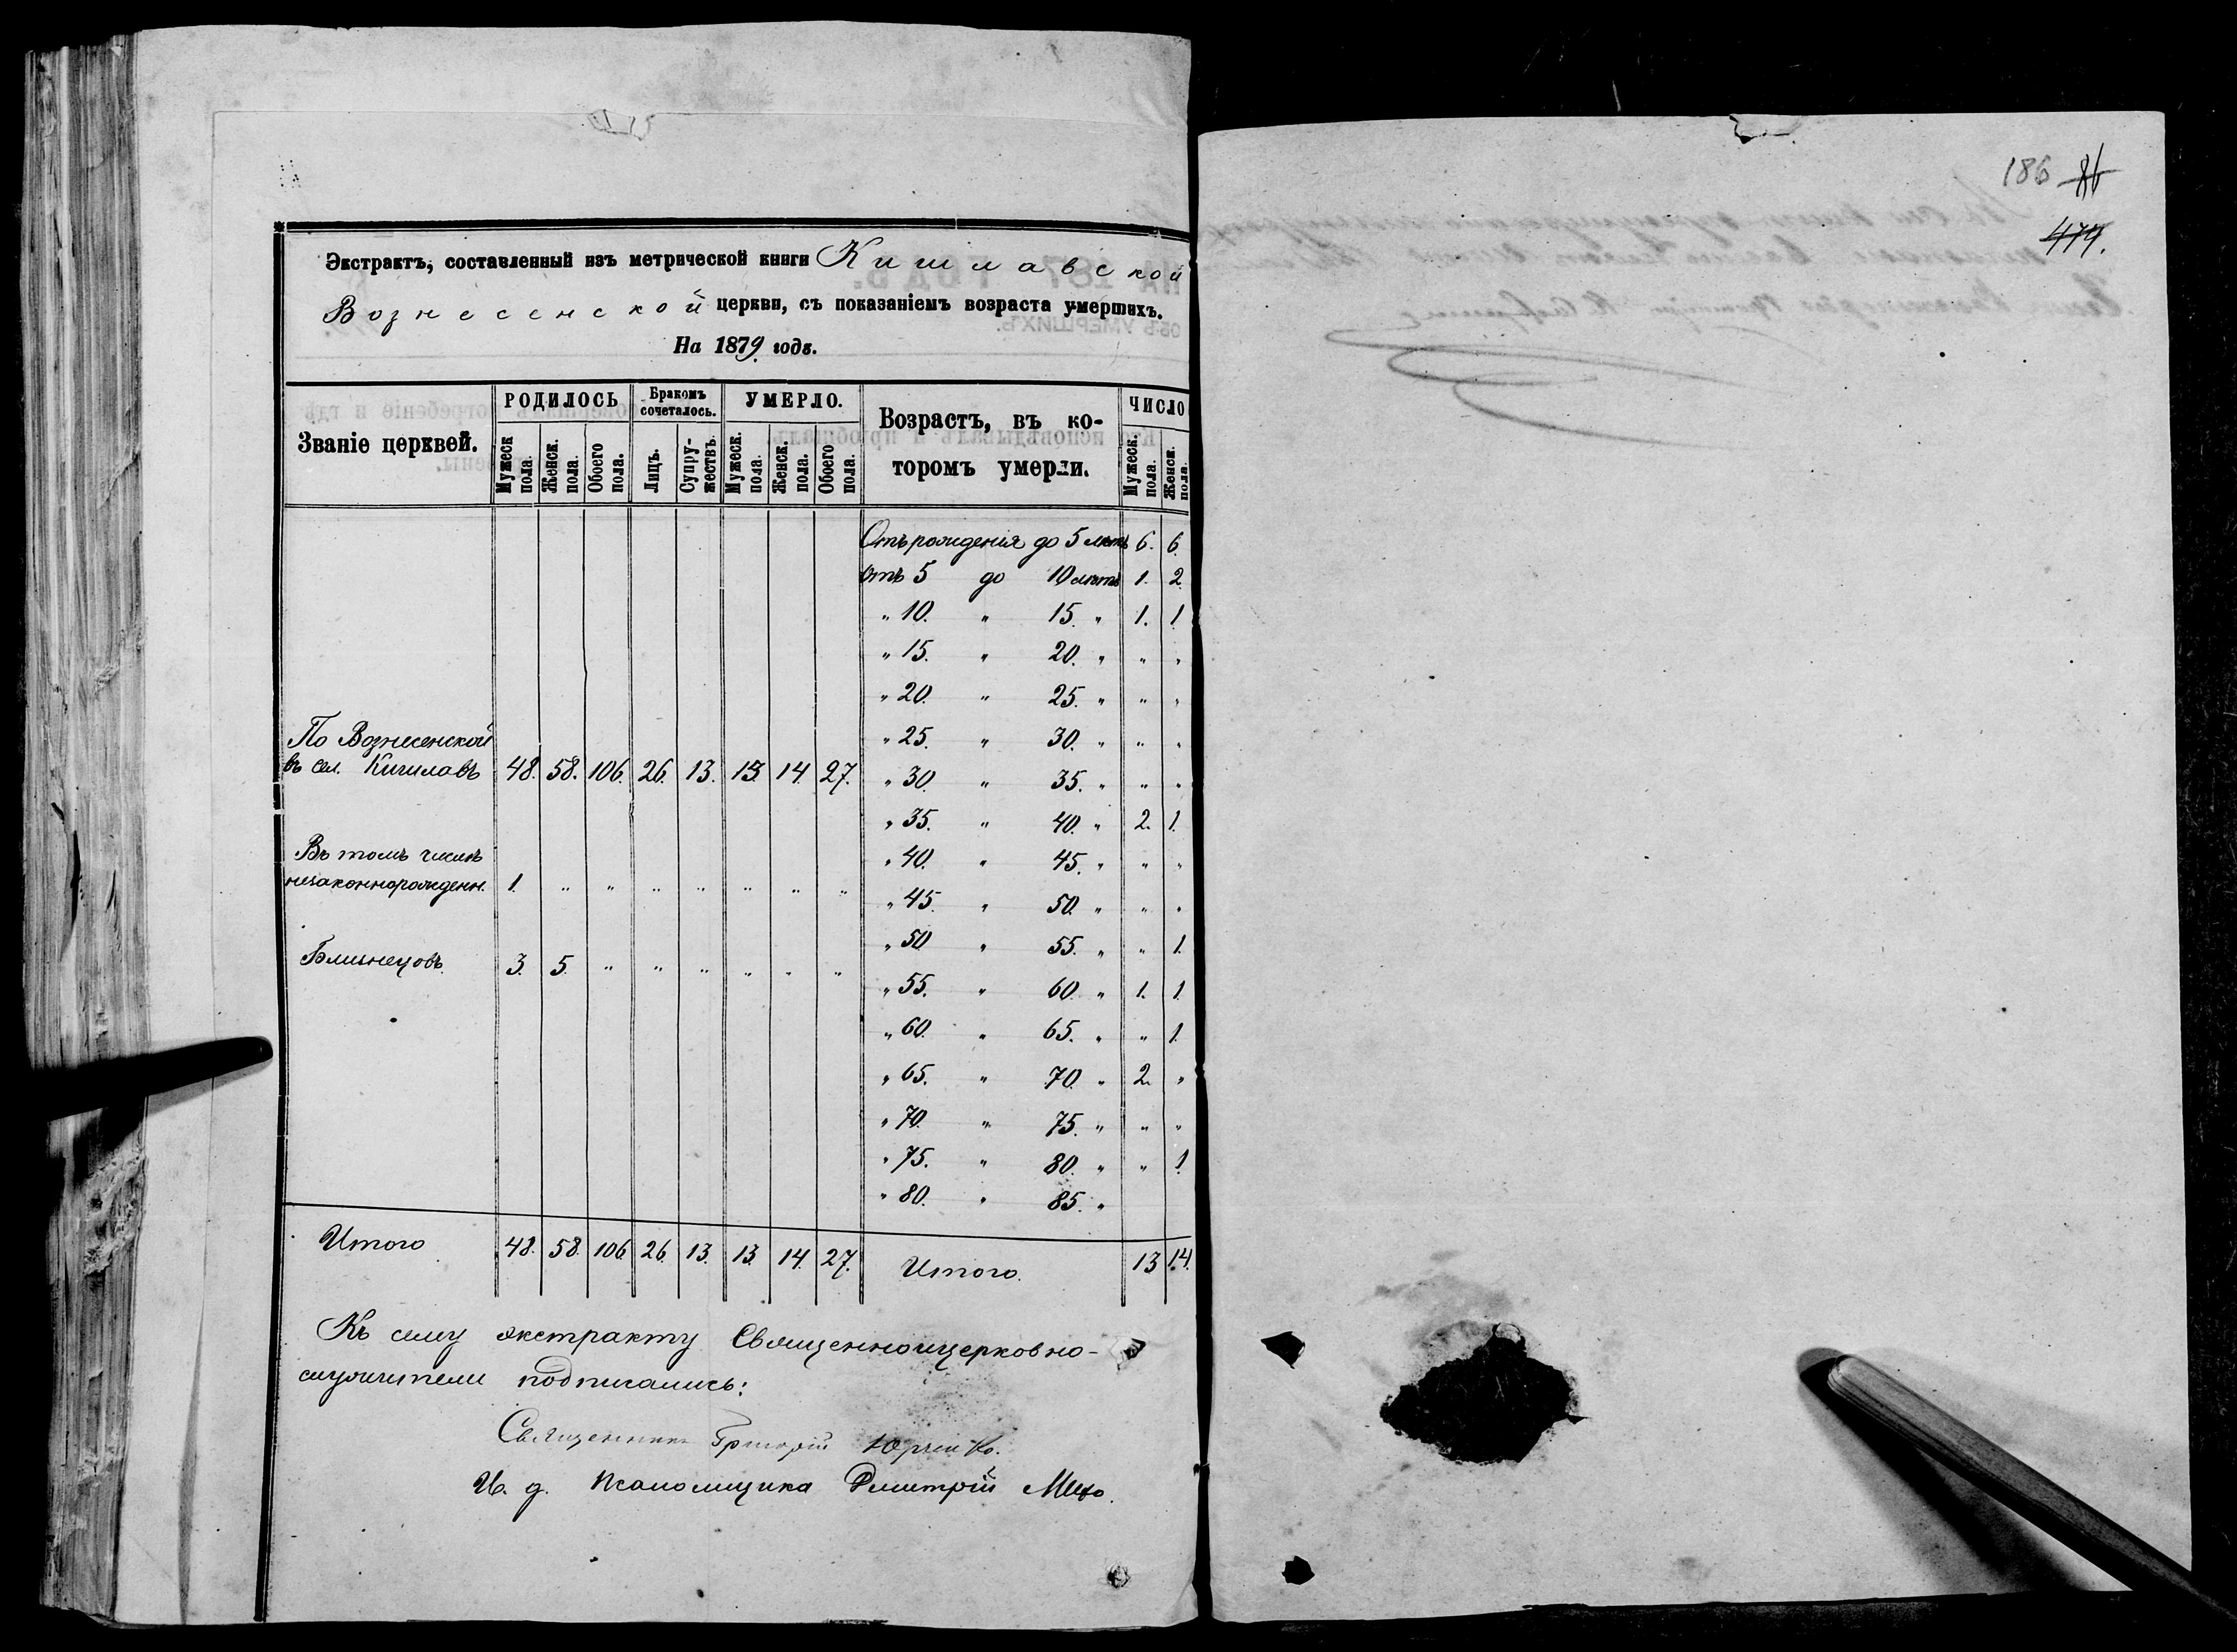 Экстрактъ, составленный изъ метрической книги Кишлавской
Вознесенской церкви, съ показаніемъ возраста умершихъ.
На 1879 годъ.
Званіе церквей. РОДИЛОСЬ Бракомъ сочеталось. УМЕРЛО. Возрастъ, въ которомъ умерли. ЧИСЛО
Мужеск пола. Женск. пола. Обоего пола. Лицъ. Супружествъ. Мужеск. пола. Женск. пола. Обоего пола. Мужеск. пола. Женск. пола.
Отъ рожденія до 5 лѣтъ 6. 6.
отъ 5 до 10 лѣтъ 1. 2.
" 10. " 15. " 1. 1.
" 15. " 20. " " "
" 20. " 25. " " "
" 25. " 30. " " "
По Вознесенской
въ сел. Кишлавъ 48. 58. 106. 26. 13. 13. 14. 27.
" 30. " 35. " " "
" 35. " 40. " 2. 1.
" 40. " 45. " " "
Въ томъ числѣ
незаконнорожденн. 1. " " " " " " "
" 45. " 50. " " "
" 50 " 55. " " 1.
Близнецовъ. 3. 5. " " " " " "
" 55. " 60. " 1. 1.
" 60. " 65. " " 1.
" 65. " 70. " 2. "
" 70. " 75. " " "
" 75. " 80. " " 1.
" 80. " 85. "
Итого 48. 58. 106. 26. 13. 13. 14. 27. Итого. 13 14.
Къ сему экстракту Священноицерковно-
служители подписались:
Священникъ Григорій
И. д. Псаломщика Димитрій
186 86
479.